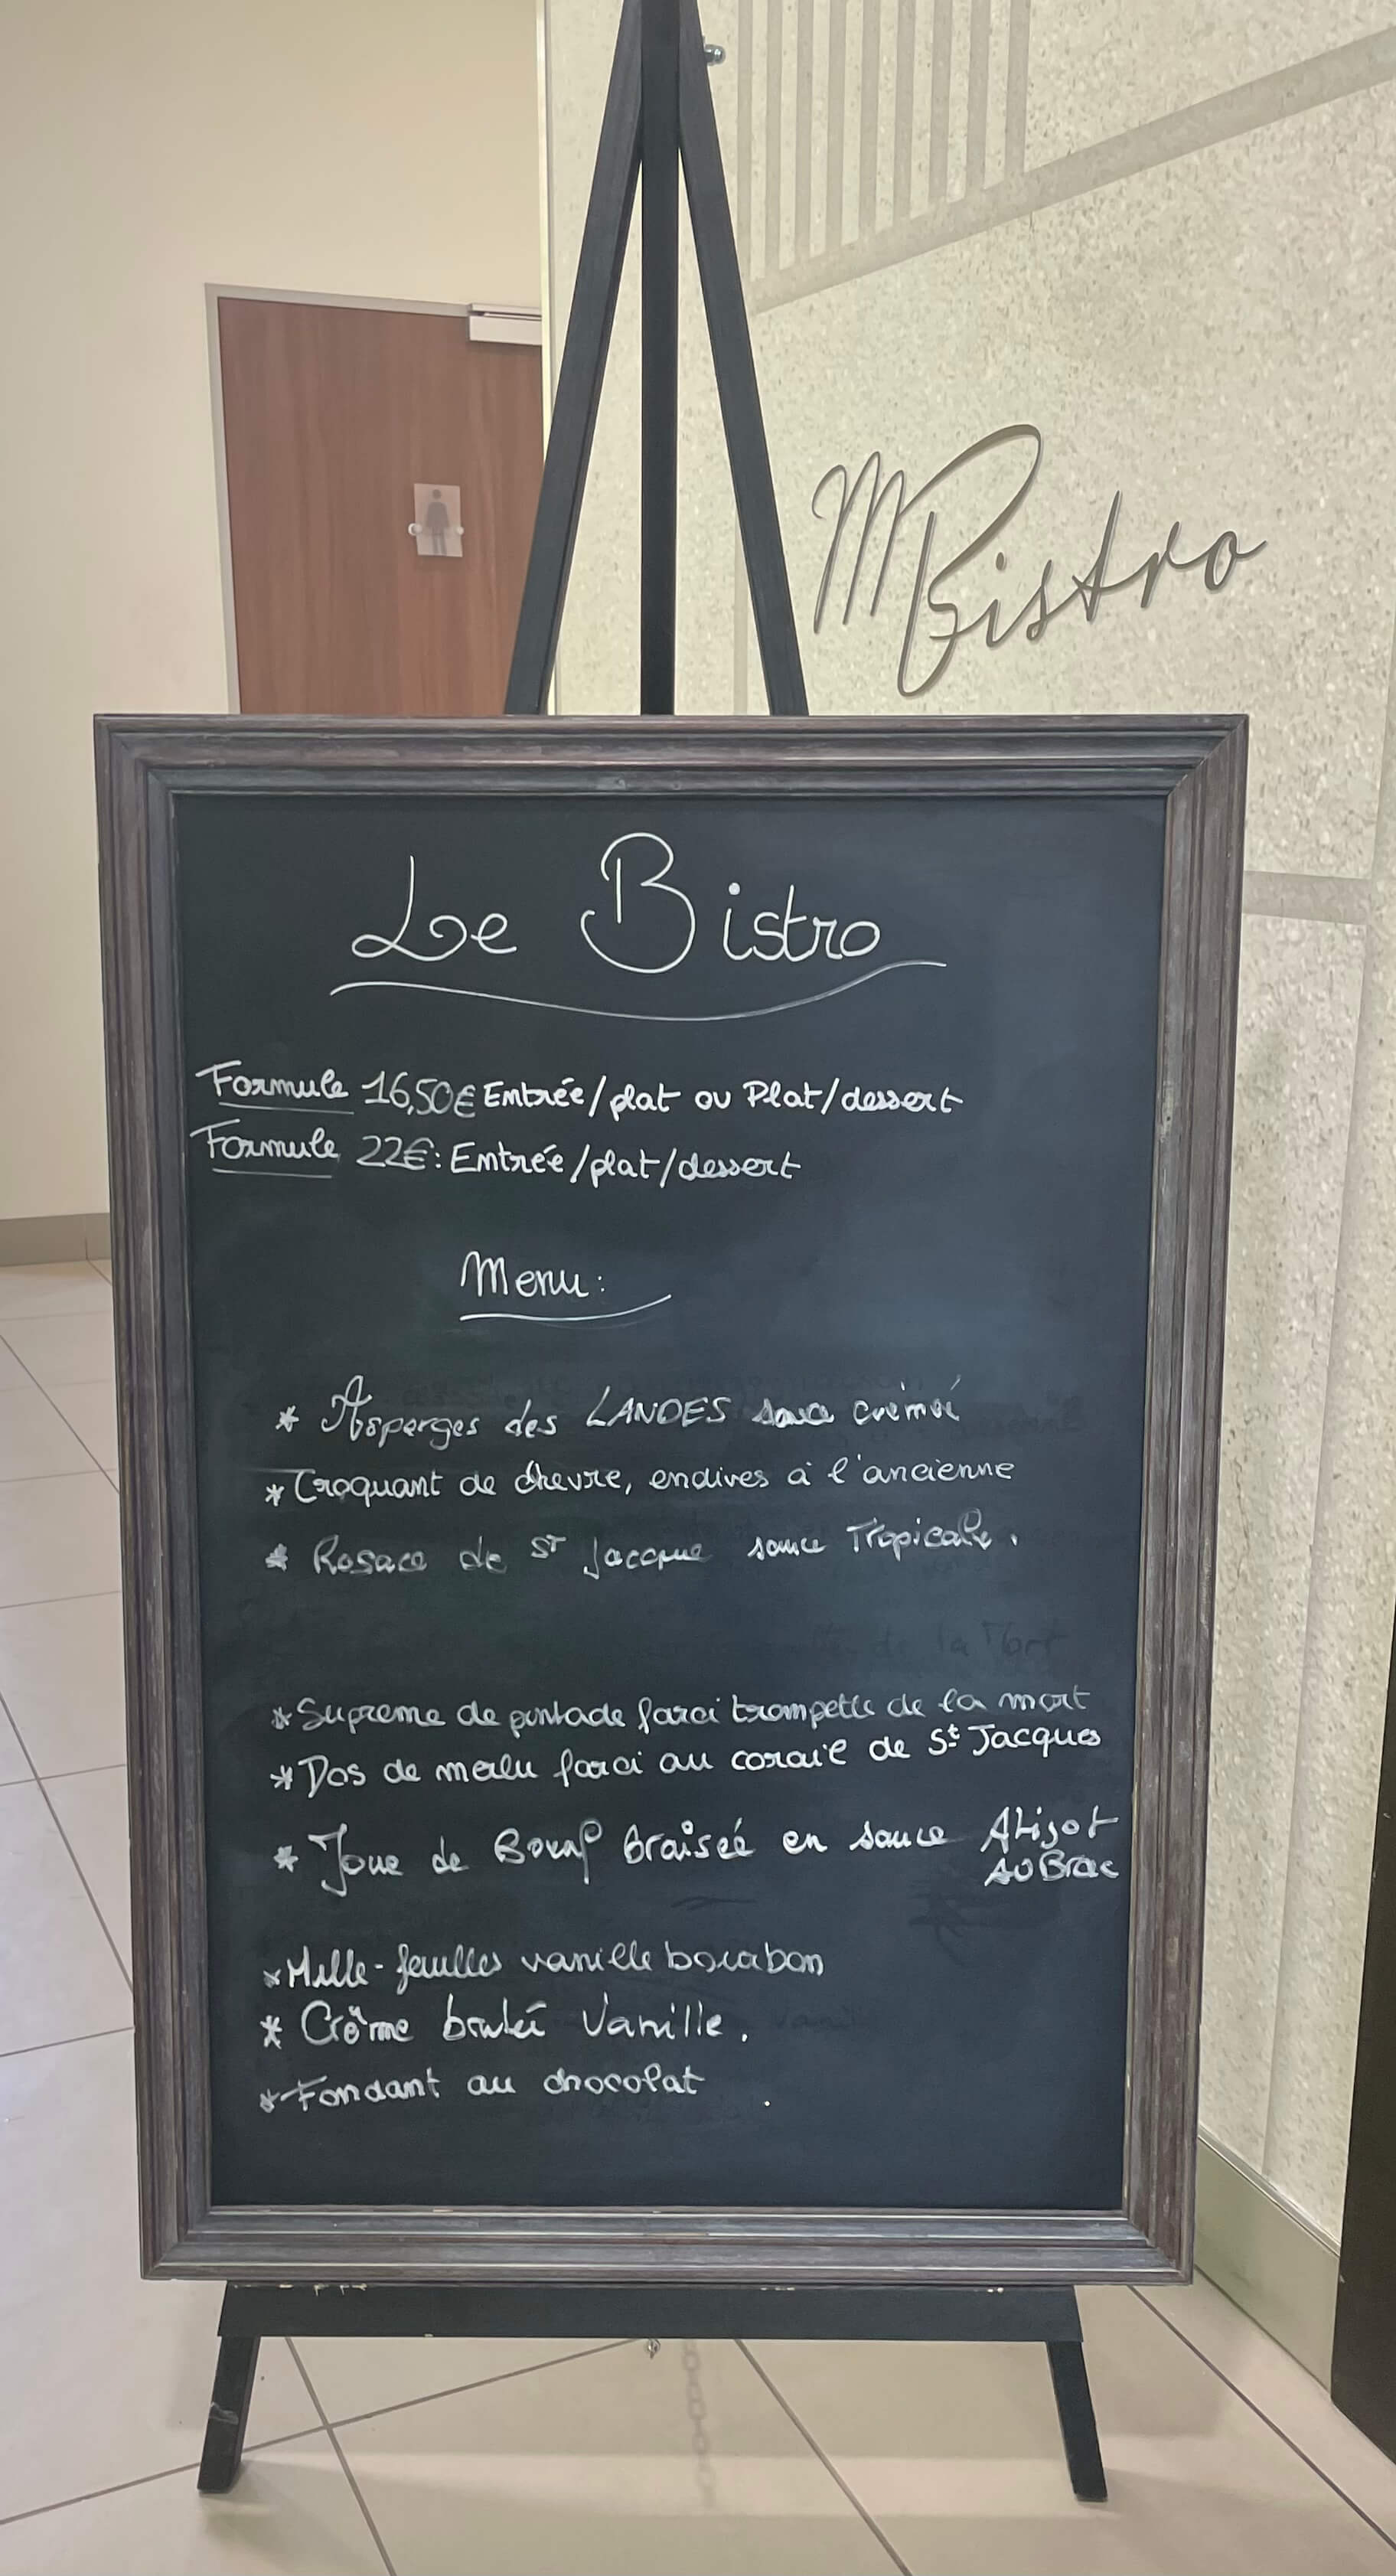 M Bistro
Le Bistro
Formule 16,50€ Entrée/plat ou Plat/dessert
Formule 22€: Entrée/plat/dessert
Menu:
* Asperges des LANDES sauce crémée
* Croquant de chevre, endives à l'ancienne
* Rosace de St Jacque sauce Tropicale.
* Supreme de pintade farci trompette de la mort
* Dos de merlu farci au corail de St Jacques
* Joue de Boeuf braiseé en sauce Aligot
AUBrac
* Mille-feuilles vanille bourbon
* Crême brulée Vanille.
* Fondant au chocolat